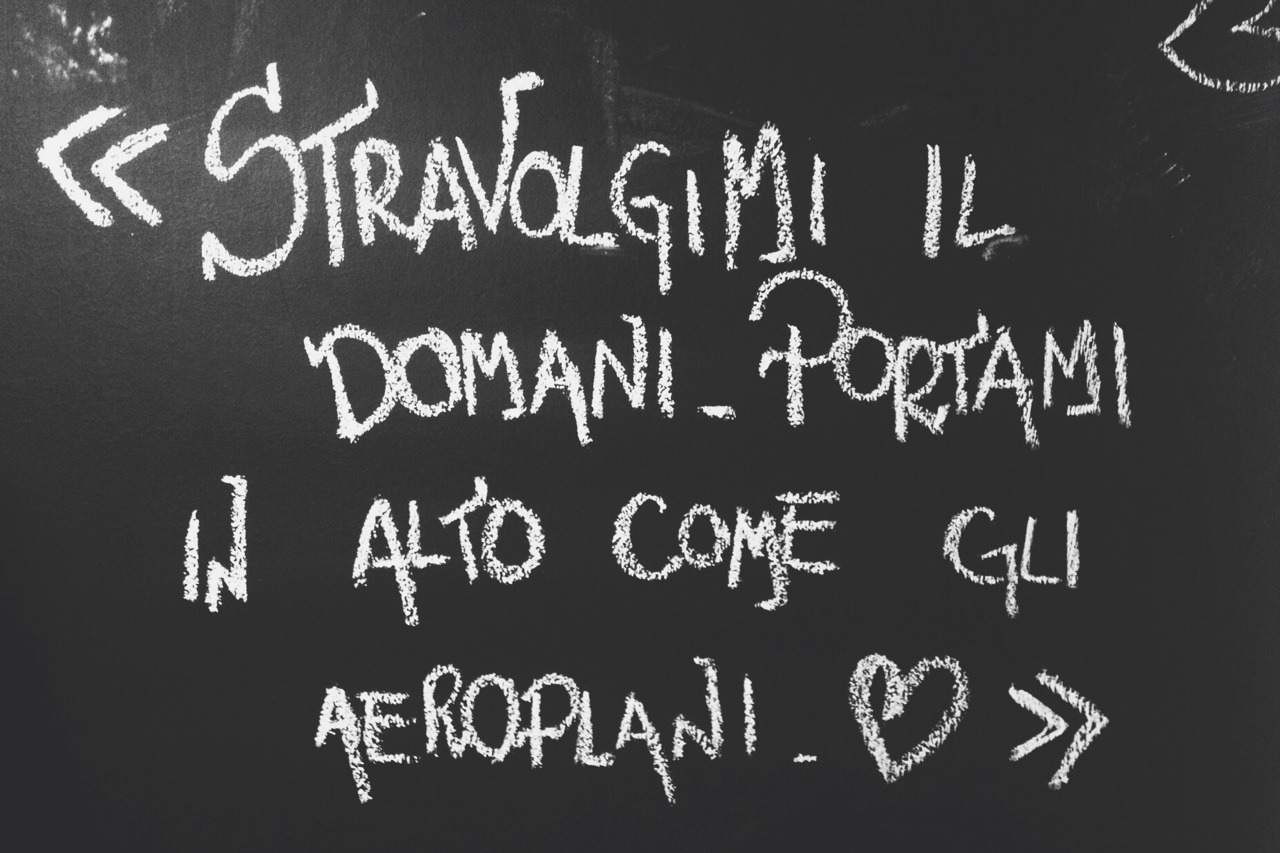 « STRAVOLGIMI IL
DOMANI_ PORTAMI
IN ALTO COME GLI
AEROPLANI_ ♡ »